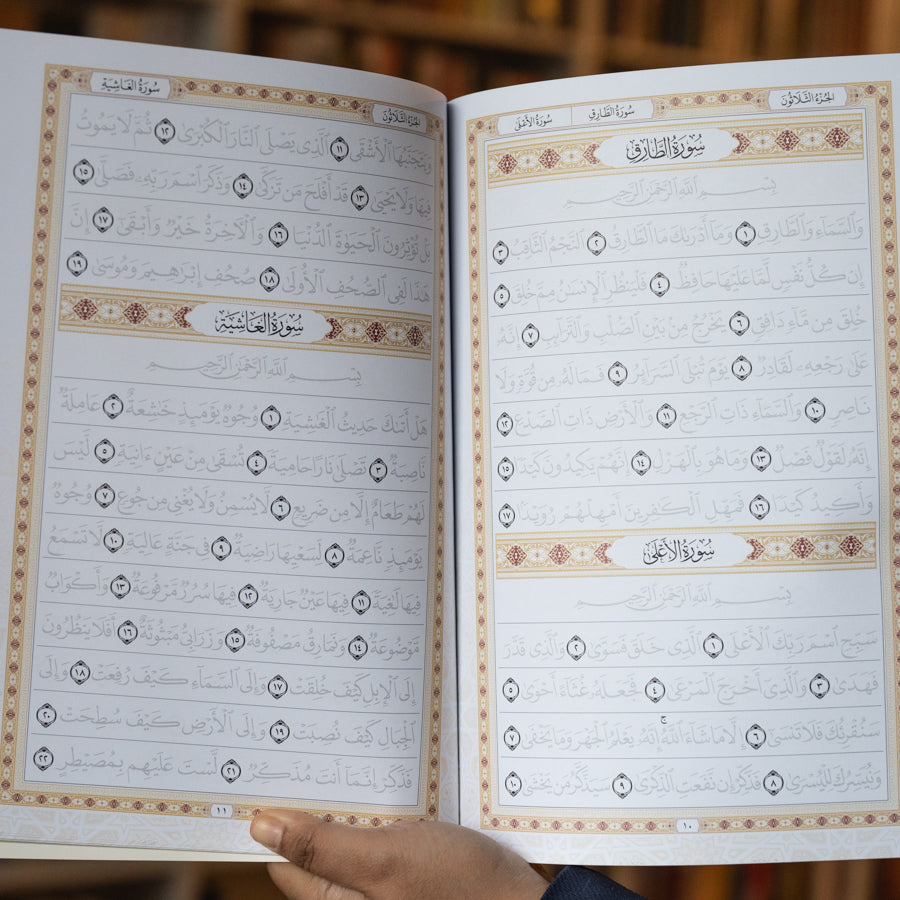 الجزء الثلاثون
سورة الطارق
سورة الأعلى
سورة الطارق
بسم الله الرحمن الرحيم
وَٱلسَّمَآءِ وَٱلطَّارِقِ ١ وَمَآ أَدْرَىٰكَ مَا ٱلطَّارِقُ ٢ ٱلنَّجْمُ ٱلثَّاقِبُ ٣
إِن كُلُّ نَفْسٍ لَّمَّا عَلَيْهَا حَافِظٌ ٤ فَلْيَنظُرِ ٱلْإِنسَٰنُ مِمَّ خُلِقَ ٥
خُلِقَ مِن مَّآءٍ دَافِقٍ ٦ يَخْرُجُ مِنۢ بَيْنِ ٱلصُّلْبِ وَٱلتَّرَآئِبِ ٧ إِنَّهُۥ
عَلَىٰ رَجْعِهِۦ لَقَادِرٌ ٨ يَوْمَ تُبْلَى ٱلسَّرَآئِرُ ٩ فَمَا لَهُۥ مِن قُوَّةٍ وَلَا
نَاصِرٍ ١٠ وَٱلسَّمَآءِ ذَاتِ ٱلرَّجْعِ ١١ وَٱلْأَرْضِ ذَاتِ ٱلصَّدْعِ ١٢
إِنَّهُۥ لَقَوْلٌ فَصْلٌ ١٣ وَمَا هُوَ بِٱلْهَزْلِ ١٤ إِنَّهُمْ يَكِيدُونَ كَيْدًا ١٥
وَأَكِيدُ كَيْدًا ١٦ فَمَهِّلِ ٱلْكَٰفِرِينَ أَمْهِلْهُمْ رُوَيْدًۢا ١٧
سورة الأعلى
بسم الله الرحمن الرحيم
سَبِّحِ ٱسْمَ رَبِّكَ ٱلْأَعْلَى ١ ٱلَّذِى خَلَقَ فَسَوَّىٰ ٢ وَٱلَّذِى قَدَّرَ
فَهَدَىٰ ٣ وَٱلَّذِىٓ أَخْرَجَ ٱلْمَرْعَىٰ ٤ فَجَعَلَهُۥ غُثَآءً أَحْوَىٰ ٥
سَنُقْرِئُكَ فَلَا تَنسَىٰٓ ٦ إِلَّا مَا شَآءَ ٱللَّهُ ۚ إِنَّهُۥ يَعْلَمُ ٱلْجَهْرَ وَمَا يَخْفَىٰ ٧
وَنُيَسِّرُكَ لِلْيُسْرَىٰ ٨ فَذَكِّرْ إِن نَّفَعَتِ ٱلذِّكْرَىٰ ٩ سَيَذَّكَّرُ مَن يَخْشَىٰ ١٠
١٠
سورة الغاشية
الجزء الثلاثون
وَيَتَجَنَّبُهَا ٱلْأَشْقَى ١١ ٱلَّذِى يَصْلَى ٱلنَّارَ ٱلْكُبْرَىٰ ١٢ ثُمَّ لَا يَمُوتُ
فِيهَا وَلَا يَحْيَىٰ ١٣ قَدْ أَفْلَحَ مَن تَزَكَّىٰ ١٤ وَذَكَرَ ٱسْمَ رَبِّهِۦ فَصَلَّىٰ ١٥
بَلْ تُؤْثِرُونَ ٱلْحَيَوٰةَ ٱلدُّنْيَا ١٦ وَٱلْءَاخِرَةُ خَيْرٌ وَأَبْقَىٰٓ ١٧ إِنَّ
هَٰذَا لَفِى ٱلصُّحُفِ ٱلْأُولَىٰ ١٨ صُحُفِ إِبْرَٰهِيمَ وَمُوسَىٰ ١٩
سورة الغاشية
بسم الله الرحمن الرحيم
هَلْ أَتَىٰكَ حَدِيثُ ٱلْغَٰشِيَةِ ١ وُجُوهٌ يَوْمَئِذٍ خَٰشِعَةٌ ٢ عَامِلَةٌ
نَّاصِبَةٌ ٣ تَصْلَىٰ نَارًا حَامِيَةً ٤ تُسْقَىٰ مِنْ عَيْنٍ ءَانِيَةٍ ٥ لَّيْسَ
لَهُمْ طَعَامٌ إِلَّا مِن ضَرِيعٍ ٦ لَّا يُسْمِنُ وَلَا يُغْنِى مِن جُوعٍ ٧ وُجُوهٌ
يَوْمَئِذٍ نَّاعِمَةٌ ٨ لِّسَعْيِهَا رَاضِيَةٌ ٩ فِى جَنَّةٍ عَالِيَةٍ ١٠ لَّا تَسْمَعُ
فِيهَا لَٰغِيَةً ١١ فِيهَا عَيْنٌ جَارِيَةٌ ١٢ فِيهَا سُرُرٌ مَّرْفُوعَةٌ ١٣ وَأَكْوَابٌ
مَّوْضُوعَةٌ ١٤ وَنَمَارِقُ مَصْفُوفَةٌ ١٥ وَزَرَابِىُّ مَبْثُوثَةٌ ١٦ أَفَلَا يَنظُرُونَ
إِلَى ٱلْإِبِلِ كَيْفَ خُلِقَتْ ١٧ وَإِلَى ٱلسَّمَآءِ كَيْفَ رُفِعَتْ ١٨ وَإِلَى
ٱلْجِبَالِ كَيْفَ نُصِبَتْ ١٩ وَإِلَى ٱلْأَرْضِ كَيْفَ سُطِحَتْ ٢٠
فَذَكِّرْ إِنَّمَآ أَنتَ مُذَكِّرٌ ٢١ لَّسْتَ عَلَيْهِم بِمُصَيْطِرٍ ٢٢
١١